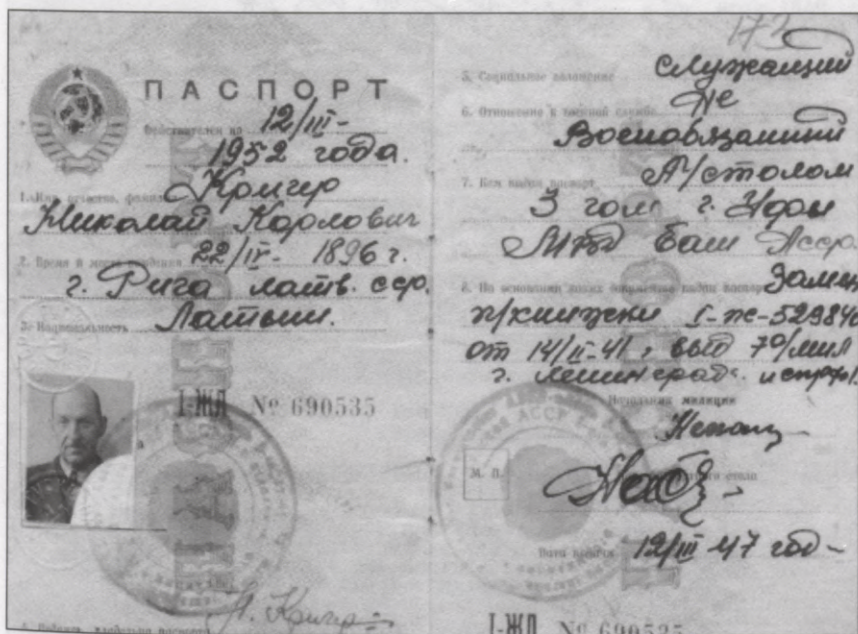 ПАСПОРТ
Действителен по 12/III-
1952 года.
1. Имя, отчество, фамилия Кригер
Николай Карлович
2. Время и место рождения 22/IV- 1896 г.
г. Рига латв. сср.
3. Национальность Латыш.
I-ЖЛ № 690535
4. Подпись владельца паспорта Н. Кригер
173
5. Социальное положение служащий
6. Отношение к военной службе Не
Военобязанный
7. Кем выдан паспорт П/столом
3 гом г. Уфы
МВД Баш Асср
8. На основании каких документов выдан паспорт Замен
п/книжки I-ж-529846
от 14/II-41, выд 70/мил
г. Ленинград.
Начальник милиции
М. П.
стола
Дата выдачи 12/III 47 год-
I-ЖЛ № 690535